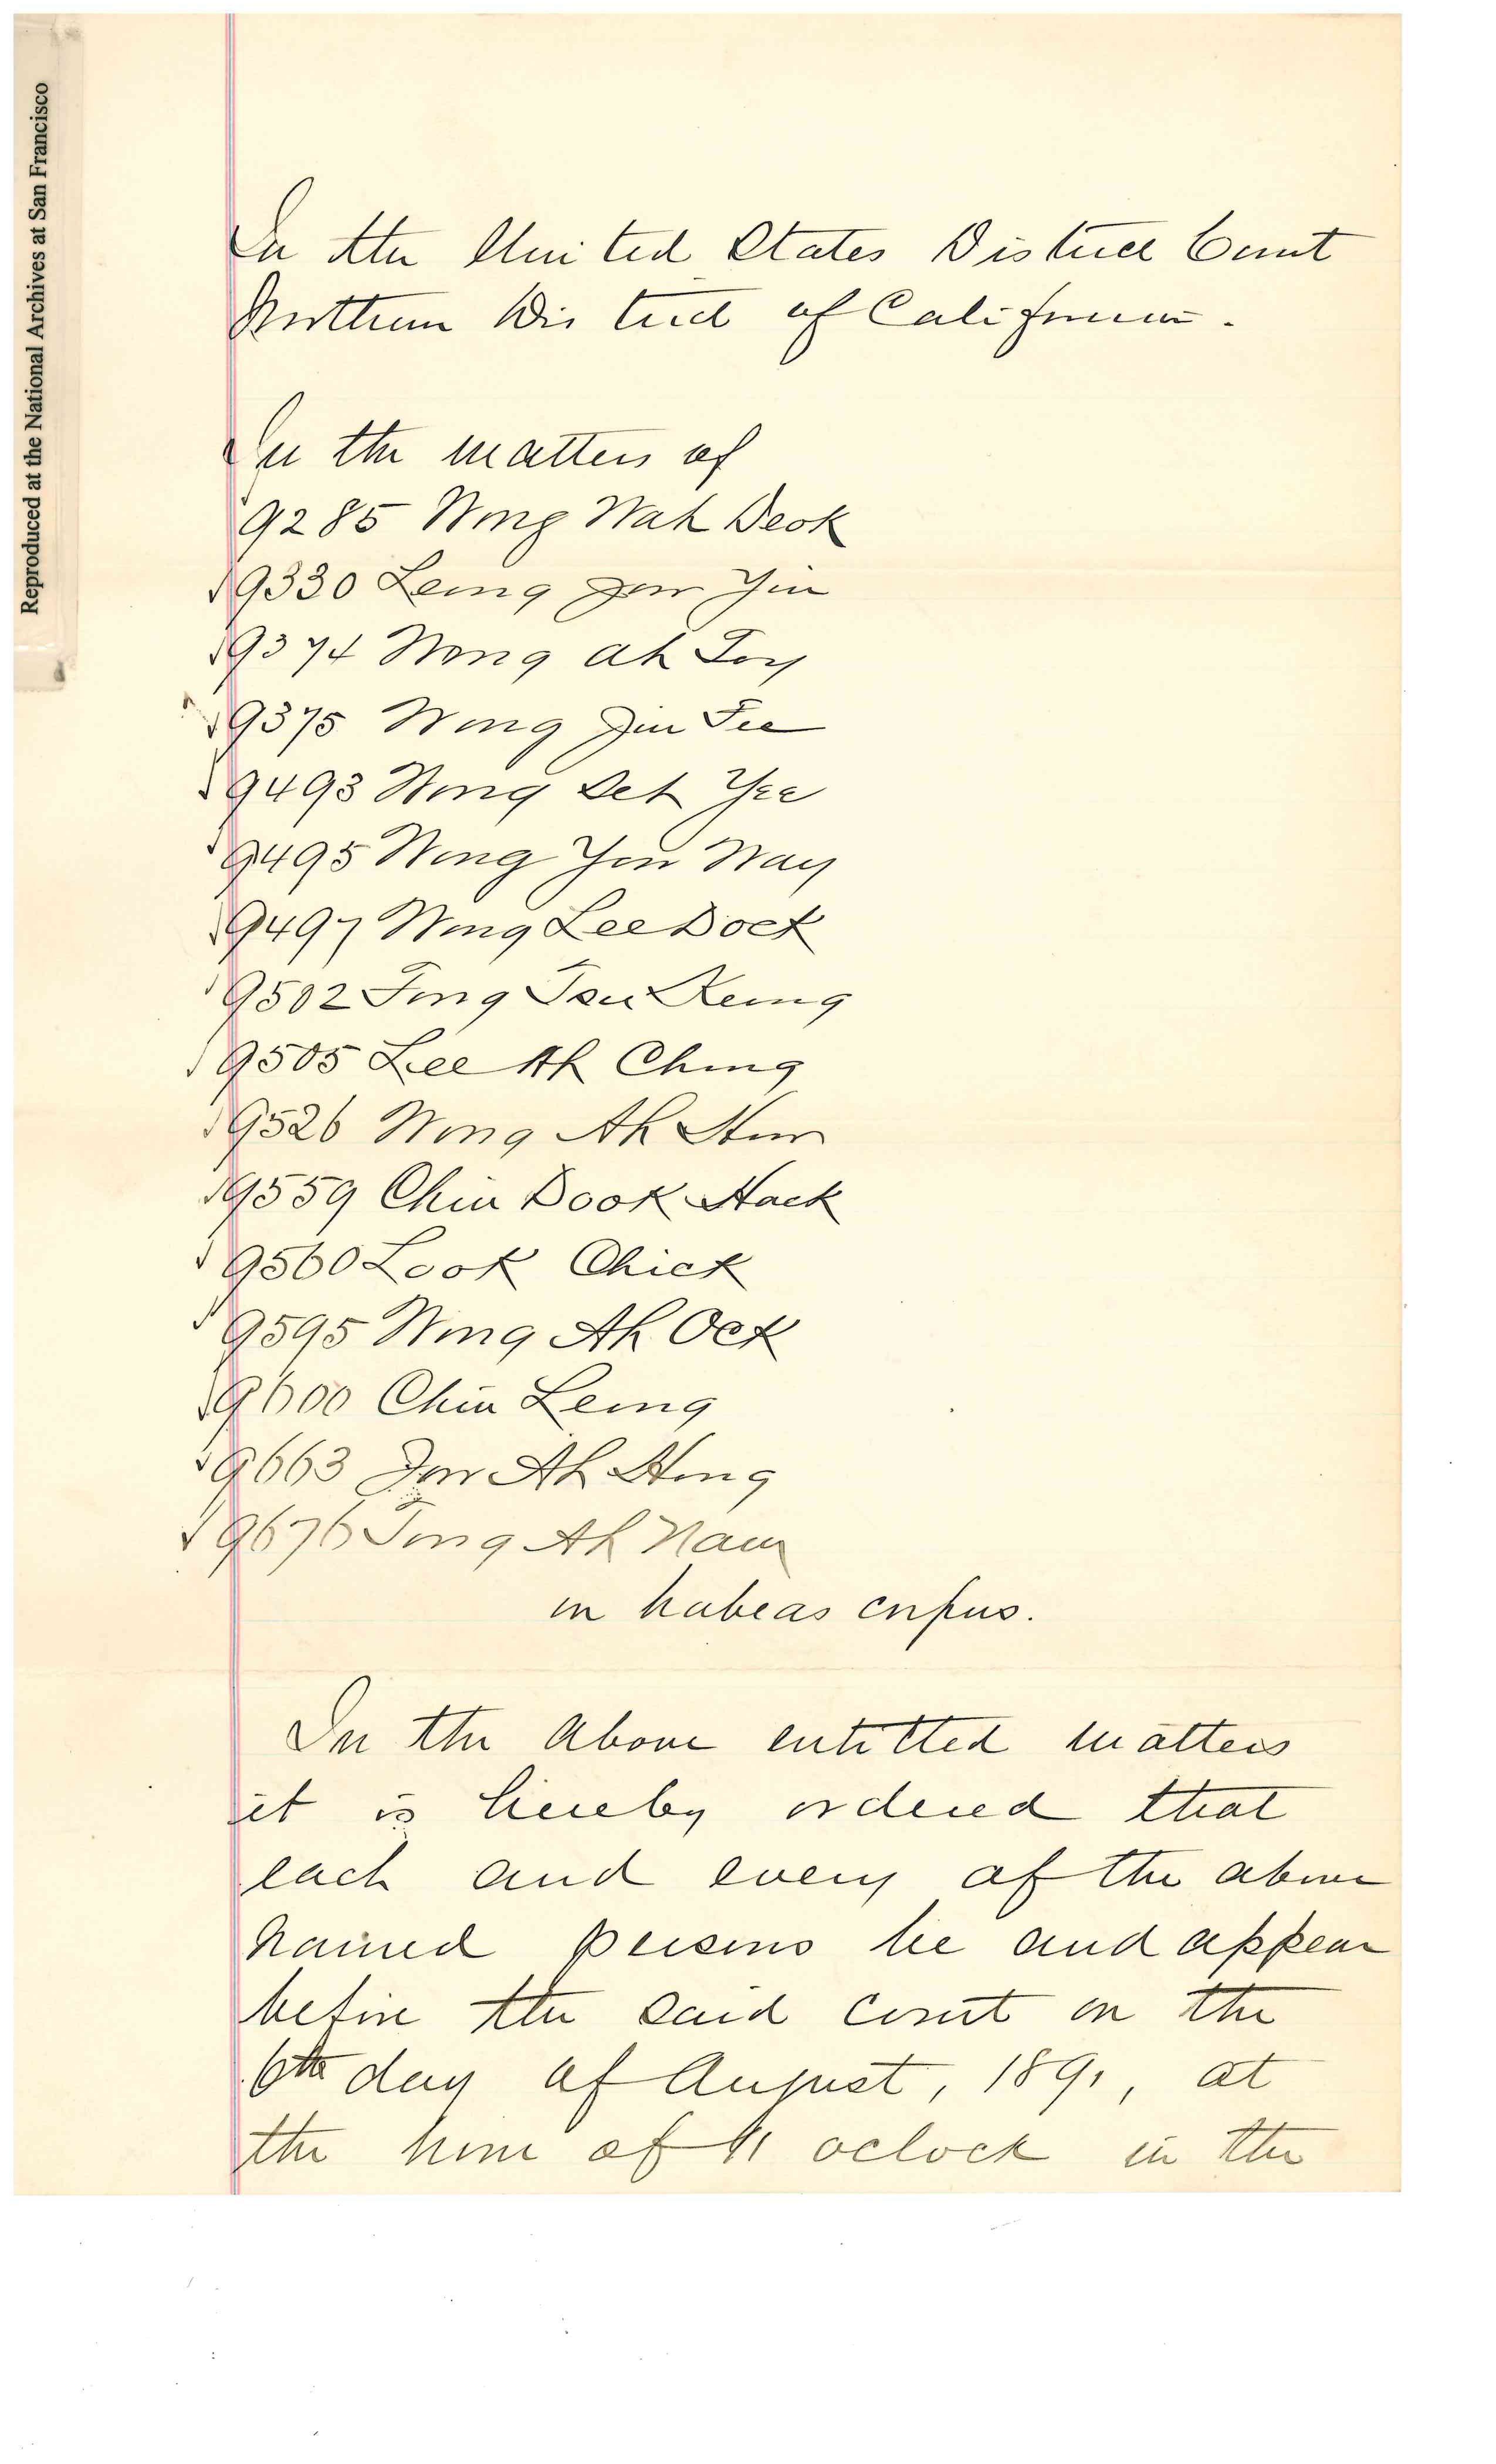 Reproduced at the National Archives at San Francisco
In the United States District Court
Northern District of California.
In the matters of
9285 Wong Wah Deok
9330 Leong Jow Yin
9374 Wong Ah Toy
9375 Wong Jin Fee
9493 Wong Set Yee
9495 Wong Yow Way
9497 Wong Lee Dock
9502 Fong Tsu Keung
9505 Lee Ah Chong
9526 Wong Ah How
9559 Chin Dook Hack
9560 Look Chick
9595 Wong Ah Ock
9600 Chin Leong
9663 Jow Ah Hong
9676 Tong Ah Nam
on habeas corpus.
In the above entitled matters
it is hereby ordered that
each and every of the above
named persons be and appear
before the said court on the
6th day of August, 1891, at
the hour of 11 oclock in the